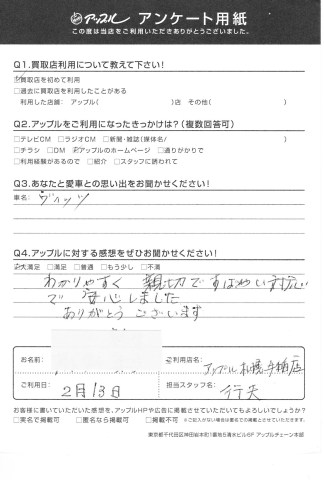 アップル アンケート用紙
この度は当店をご利用いただきありがとうございました。
Q1.買取店利用について教えて下さい!
□買取店を初めて利用
□過去に買取店を利用したことがある
利用した店舗: アップル( )店 その他( )
Q2.アップルをご利用になったきっかけは?(複数回答可)
□テレビCM □ラジオCM □新聞・雑誌(媒体名/ )
□チラシ □DM □アップルのホームページ □通りがかりで
□利用経験があるので □紹介 □スタッフに誘われて
Q3.あなたと愛車との思い出をお聞かせください!
車名: ヴィッツ
Q4.アップルに対する感想をぜひお聞かせください!
□大満足 □満足 □普通 □もう少し □不満
わかりやすく 親切ですばやい対応
で 安心しました
ありがとう ございます
お名前:
ご利用店名:
アップル札幌手稲店
ご利用日:
2月13日
担当スタッフ名:
お客様に書いていただいた感想を、アップルHPや広告に掲載させていただいてもよろしいでしょうか?
□実名で掲載可 □匿名なら掲載可 □掲載不可 ※ご記入がない場合は匿名での掲載とさせていただきます。
東京都千代田区神田岩本町1番地5清水ビル6F アップルチェーン本部